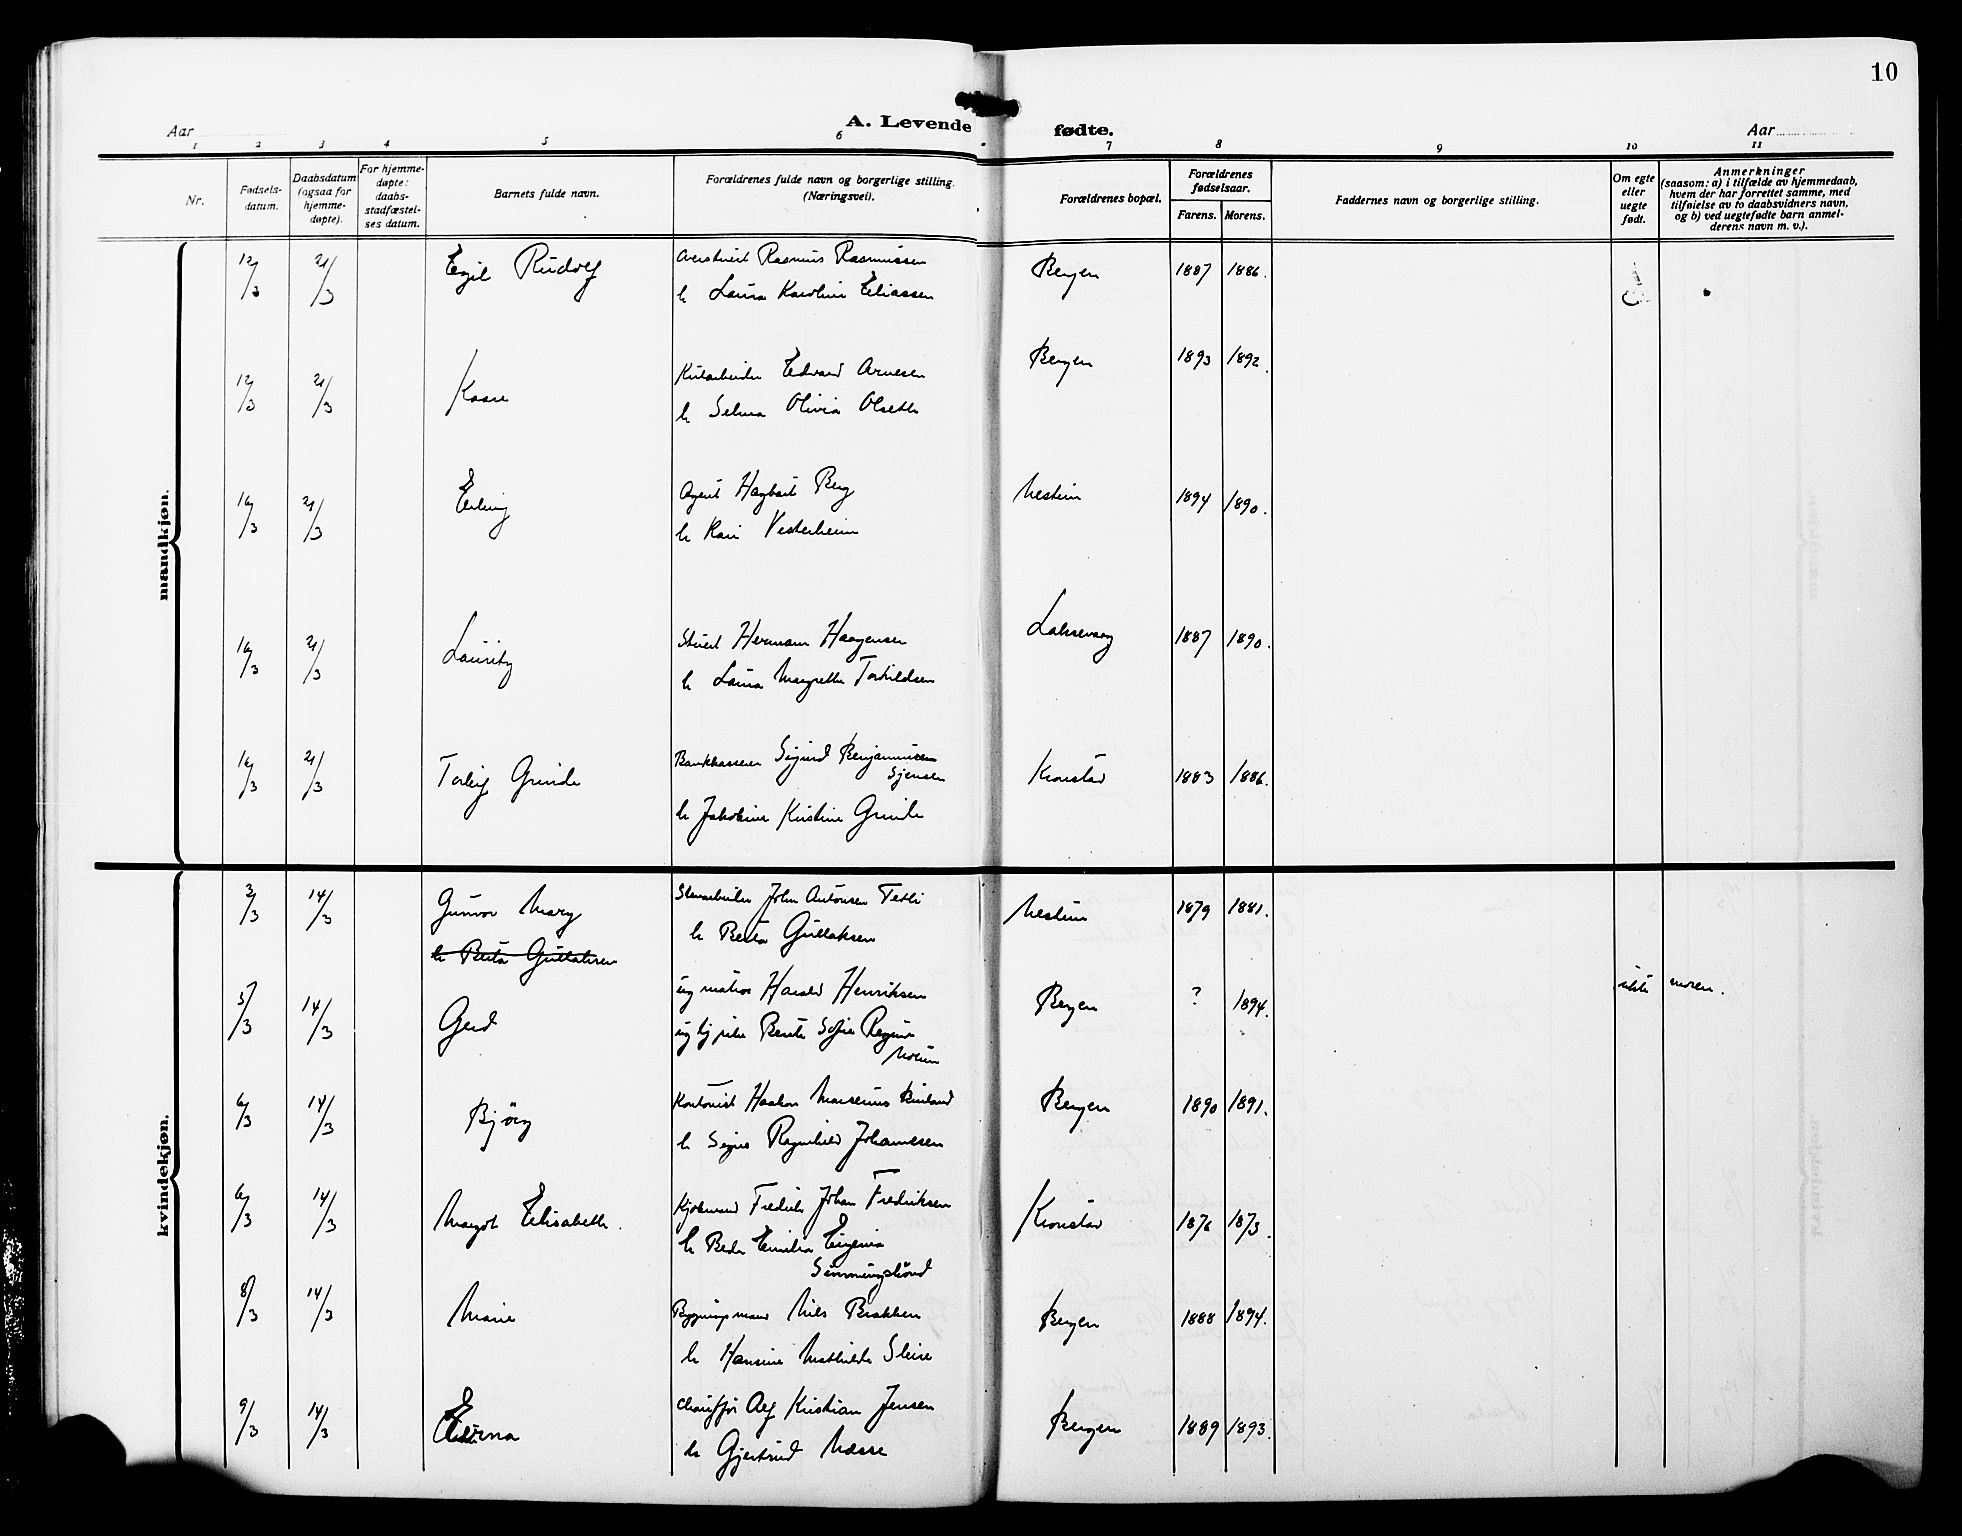 10
Aar
A. Levende
fødte.
Aar
1 2 3 4 5 6 7 8 9 10 11
Nr.
Fødsels-
datum.
Daabsdatum
(ogsaa for
hjemme-
døpte).
For hjemme-
døpte:
daabs-
stadfæstel-
ses datum.
Barnets fulde navn.
Forældrenes fulde navn og borgerlige stilling.
(Næringsvei).
Forældrenes bopæl.
Forældrenes
fødselsaar.
Farens. Morens.
Faddernes navn og borgerlige stilling.
Om egte
eller
uegte
født.
Anmerkninger
(saasom: a) i tilfælde av hjemmedaab,
hvem der har forrettet samme, med
tilføielse av to daabsvidners navn,
og b) ved uegtefødte barn anmel-
derens navn m. v.).
mandkjøn.
12/3 21/3 Egil Rudolf Rasmus Rasmussen Bergen 1887 1886.
h Laura Karoline Eliassen
12/3 21/3 Kaare Edvard Arnesen Bergen 1893 1892.
h Selma Olivia Olseth
16/3 21/3 Erling Agent Hagbart Berg Nestun 1894 1890.
h Kari Vesterheim
16/3 21/3 Lauritz Stuert Herman Haagensen Laksevaag 1887 1890.
h Laura Margrethe Torkildsen
16/3 21/3 Torleif Grinde Bankkasserer Sigurd Benjaminsen Kronstad 1883 1886.
h Jakobine Kristine Grinde
kvindekjøn.
3/3 14/3 Gunvor Mary John Antonsen Nestun 1879 1881.
h Berta Gullaksen
h Berta Gullaksen
5/3 14/3 Gerd ug matros Harald Henriksen Bergen ? 1894. moren.
Berta Sofie Regine
6/3 14/3 Bjørg Kontorist Haakon Marselius Bergen 1890 1891.
h Signe Ragnhild Johannesen
6/3 14/3 Margot Elisabeth. Kjøbmand Fredrik Johan Fredriksen Kronstad 1876 1873.
h Beda Emilia Eugenia
8/3 14/3 Marie Bygningsmand Nils Brakken Bergen 1888 1894.
h Hansine Mathilde Sleire
9/3 14/3 Erna Chauffør Alf Kristian Jensen Bergen 1889 1893.
h Gjertrud Næsse